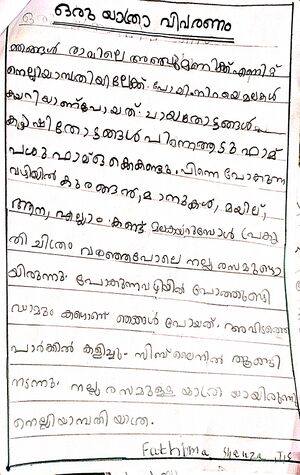 ഒരു യാത്രാ വിവരണം
ഞങ്ങൾ രാവിലെ അഞ്ചുമണിക്ക് എണീറ്റ്
നെല്ലിയാമ്പതിയിലേക്ക് പോയി. നിറയെ മലകൾ
കയറിയാണ് പോയത്. ചായതോട്ടങ്ങൾ,
കൃഷി തോട്ടങ്ങൾ പിന്നെ ആടു ഫാമ്
പശു ഫാമ് ഒക്കെ കണ്ടു. പിന്നെ പോകുന്ന
വഴിയിൽ കുരങ്ങൻ, മാനുകൾ, മയില്,
ആന, എല്ലാം കണ്ടു മലകയറുമ്പോൾ പ്രകൃ
തി ചിത്രം വരഞ്ഞപോലെ നല്ല രസമുണ്ടാ
യിരുന്നു. പോകുന്നവഴിയിൽ പോത്തുണ്ടി
ഡാമും കണ്ടാണ് ഞങ്ങൾ പോയത്. അവിടത്തെ
പാർക്കിൽ കളിച്ചു. സിമ്പ് ലൈനിൽ തൂങ്ങി
നടന്നു. നല്ല രസമുള്ള യാത്ര യായിരുന്നു
നെല്ലിയാമ്പതി യാത്ര.
Fathima Shenza